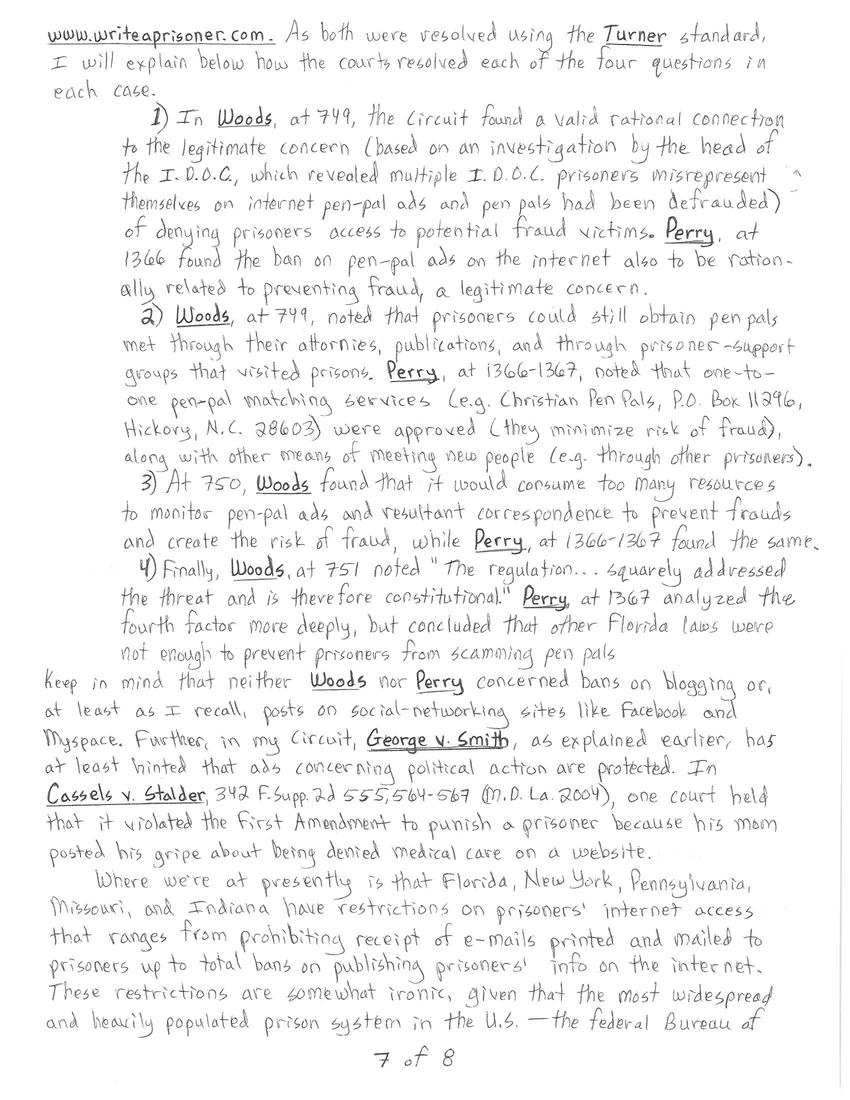 www.writeaprisoner.com. As both were resolved using the Turner standard,
I will explain below how the courts resolved each of the four questions in
each case.
1) In Woods, at 749, the Circuit found a valid rational connection
to the legitimate concern (based on an investigation by the head of
the I.D.O.C., which revealed multiple I.D.O.C. prisoners misrepresent
themselves on internet pen-pal ads and pen pals had been defrauded)
of denying prisoners access to potential fraud victims. Perry, at
1366 found the ban on pen-pal ads on the internet also to be ration-
ally related to preventing fraud, a legitimate concern.
2) Woods, at 749, noted that prisoners could still obtain pen pals
met through their attornies, publications, and through prisoner-support
groups that visited prisons. Perry, at 1366-1367, noted that one-to-
one pen-pal matching services (e.g. Christian Pen Pals, P.O. Box 11296,
Hickory, N.C. 28603) were approved (they minimize risk of fraud),
along with other means of meeting new people (e.g. through other prisoners).
3) At 750, Woods found that it would consume too many resources
to monitor pen-pal ads and resultant correspondence to prevent frauds
and create the risk of fraud, while Perry, at 1366-1367 found the same.
4) Finally, Woods, at 751 noted "The regulation... squarely addressed
the threat and is therefore constitutional." Perry, at 1367 analyzed the
fourth factor more deeply, but concluded that other Florida laws were
not enough to prevent prisoners from scamming pen pals
Keep in mind that neither Woods nor Perry concerned bans on blogging or,
at least as I recall, posts on social-networking sites like Facebook and
Myspace. Further, in my Circuit, George v. Smith, as explained earlier, has
at least hinted that ads concerning political action are protected. In
Cassels v. Stalder, 342 F.Supp. 2d 555, 564-567 (M.D. La. 2004), one court held
that it violated the First Amendment to punish a prisoner because his mom
posted his gripe about being denied medical care on a website.
Where we're at presently is that Florida, New York, Pennsylvania,
Missouri, and Indiana have restrictions on prisoners' internet access
that ranges from prohibiting receipt of e-mails printed and mailed to
prisoners up to total bans on publishing prisoners' info on the internet.
These restrictions are somewhat ironic, given that the most widespread
and heavily populated prison system in the U.S. — the federal Bureau of
7 of 8